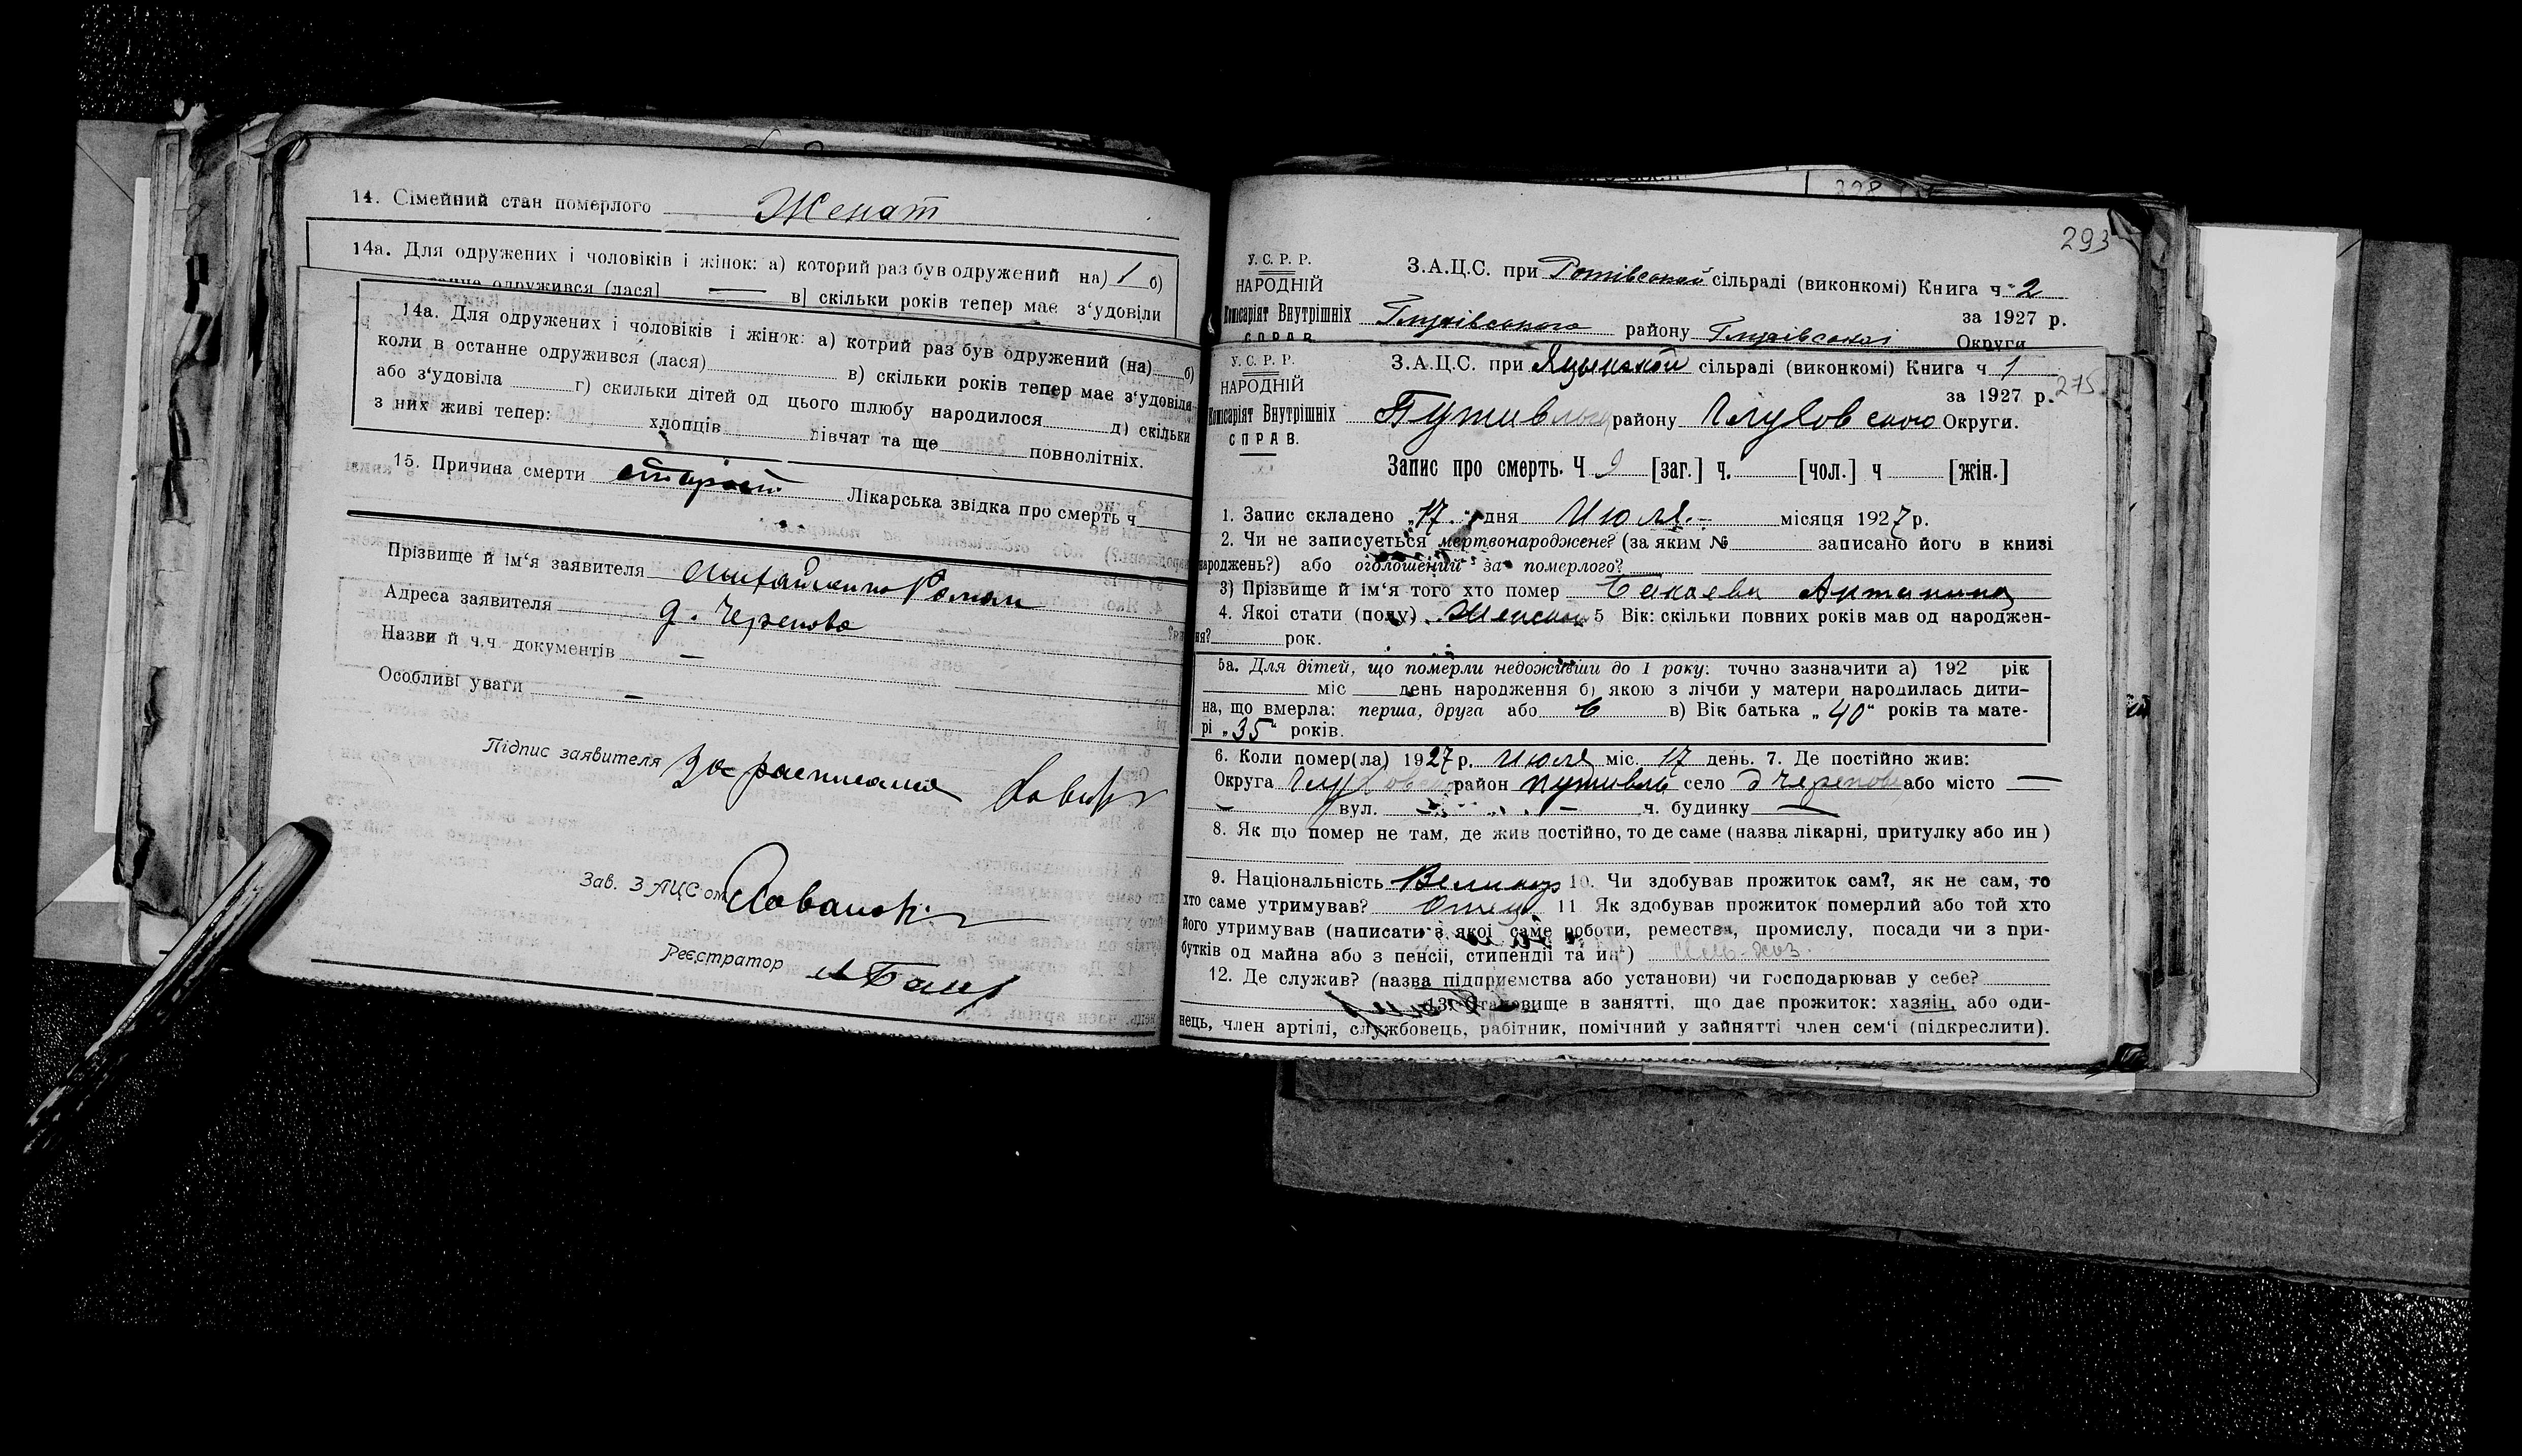 14. Сімейний стан померлого Женат
14а. Для одружених і чоловіків і жінок: а) которий раз був одружений на) 1 б)
одружився (лася] — в] скільки років тепер має з‘удовіли
14а. Для одружених і чоловіків і жінок: а) котрий раз був одружений (на) б)
коли в останне одружився (лася) в) скільки років тепер має з‘удовіля
або з‘удовіла г) скильки дітей од цього шлюбу народилося д) скільки
з них живі тепер: хлопців дівчат та ще повнолітніх.
15. Причина смерти Лікарська звідка про смерть ч
Прізвище й ім‘я заявителя Роман
Адреса заявителя д. Черепово
Назви й ч.ч документів —
Особливі уваги —
Підпис заявителя За
Зав. ЗАЦСом
Реєстратор
293
У. С. Р. Р.
НАРОДНІЙ
Комісаріят Внутрішніх
СПРАВ
З.А.Ц.С. при сільраді (виконкомі) Книга ч 2
за 1927 р.
Глухівського району Глухівської Округи
У. С. Р. Р.
НАРОДНІЙ
Комісаріят Внутрішніх
СПРАВ.
З.А.Ц.С. при Яцынской сільраді (виконкомі) Книга ч 1
за 1927 р. 275
району Глуховского Округи.
Запис про смерть. Ч 9 [заг.] ч. [чол.] ч [жін.]
1. Запис складено „17.“ дня Июля.- місяця 1927 р.
2. Чи не записується мертвонароджене? (за яким № записано його в книзі
народжень?) або оголошений за померлого?
3) Прізвище й ім‘я того хто помер Бакаева Антанина
4. Якої стати (полу) Женской 5 Вік: скільки повних років мав од народжен-
ня? рок.
5а. Для дітей, що померли недоживши до 1 року: точно зазначити а) 192 рік
міс день народження б) якою з лічби у матери народилась дити-
на, що вмерла: перша, друга або 6 в) Вік батька „40“ років та мате-
рі „35“ років.
6. Коли помер(ла) 1927 р. Июля міс. 17 день. 7. Де постійно жив:
Округа район Путивль село д Черепово або місто —
— вул. — ч. будинку —
8. Як що помер не там, де жив постійно, то де саме (назва лікарні, притулку або ин )
9. Національність Великор 10. Чи здобував прожиток сам?, як не сам, то
хто саме утримував? Отец 11 Як здобував прожиток померлий або той хто
його утримував (написати з якої саме роботи, ремества, промислу, посади чи з при-
бутків од майна або з пенсії, стипендії та ин) Сель-хоз.
12. Де служив? (назва підприємства або установи) чи господарював у себе?
13. Становище в занятті, що дає прожиток: хазяїн, або оди-
нець, член артілі, службовець, рабітник, помічний у зайнятті член сем‘ї (підкреслити).